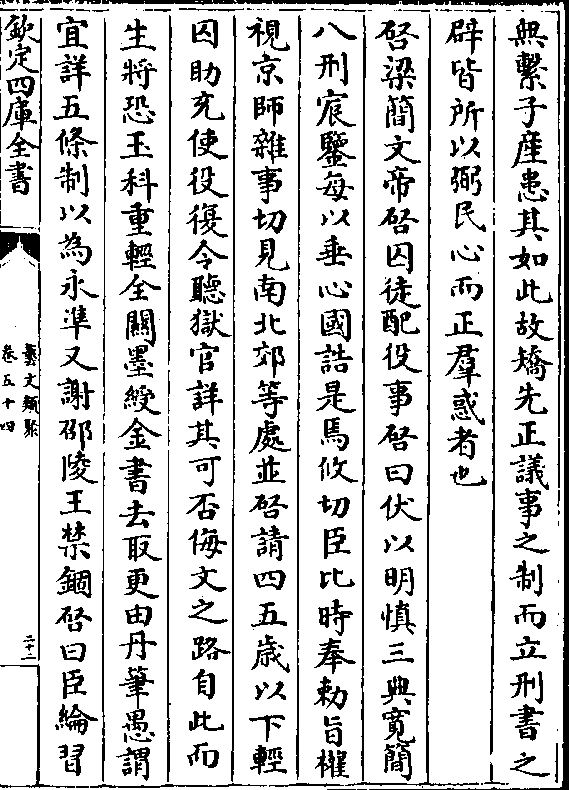 無繫子産患其如此故矯先正議事之制而立刑書之
辟皆所以弼民心而正羣惑者也
啓梁簡文帝啓囚徒配役事啓曰伏以明慎三典寛簡
八刑宸鑒每以垂心國誥是焉攸切臣比時奉勅旨權
視京師雜事切見南北郊等處並啓請四五歳以下輕
囚助充使役復令聽獄官詳其可否侮文之路自此而
生將恐玉科重輕全關墨綬金書去取更由丹筆愚謂
宜詳五條制以為永準又謝邵陵王禁錮啓曰臣綸習
欽定四庫全書
藝文類聚
卷五十四
二十二